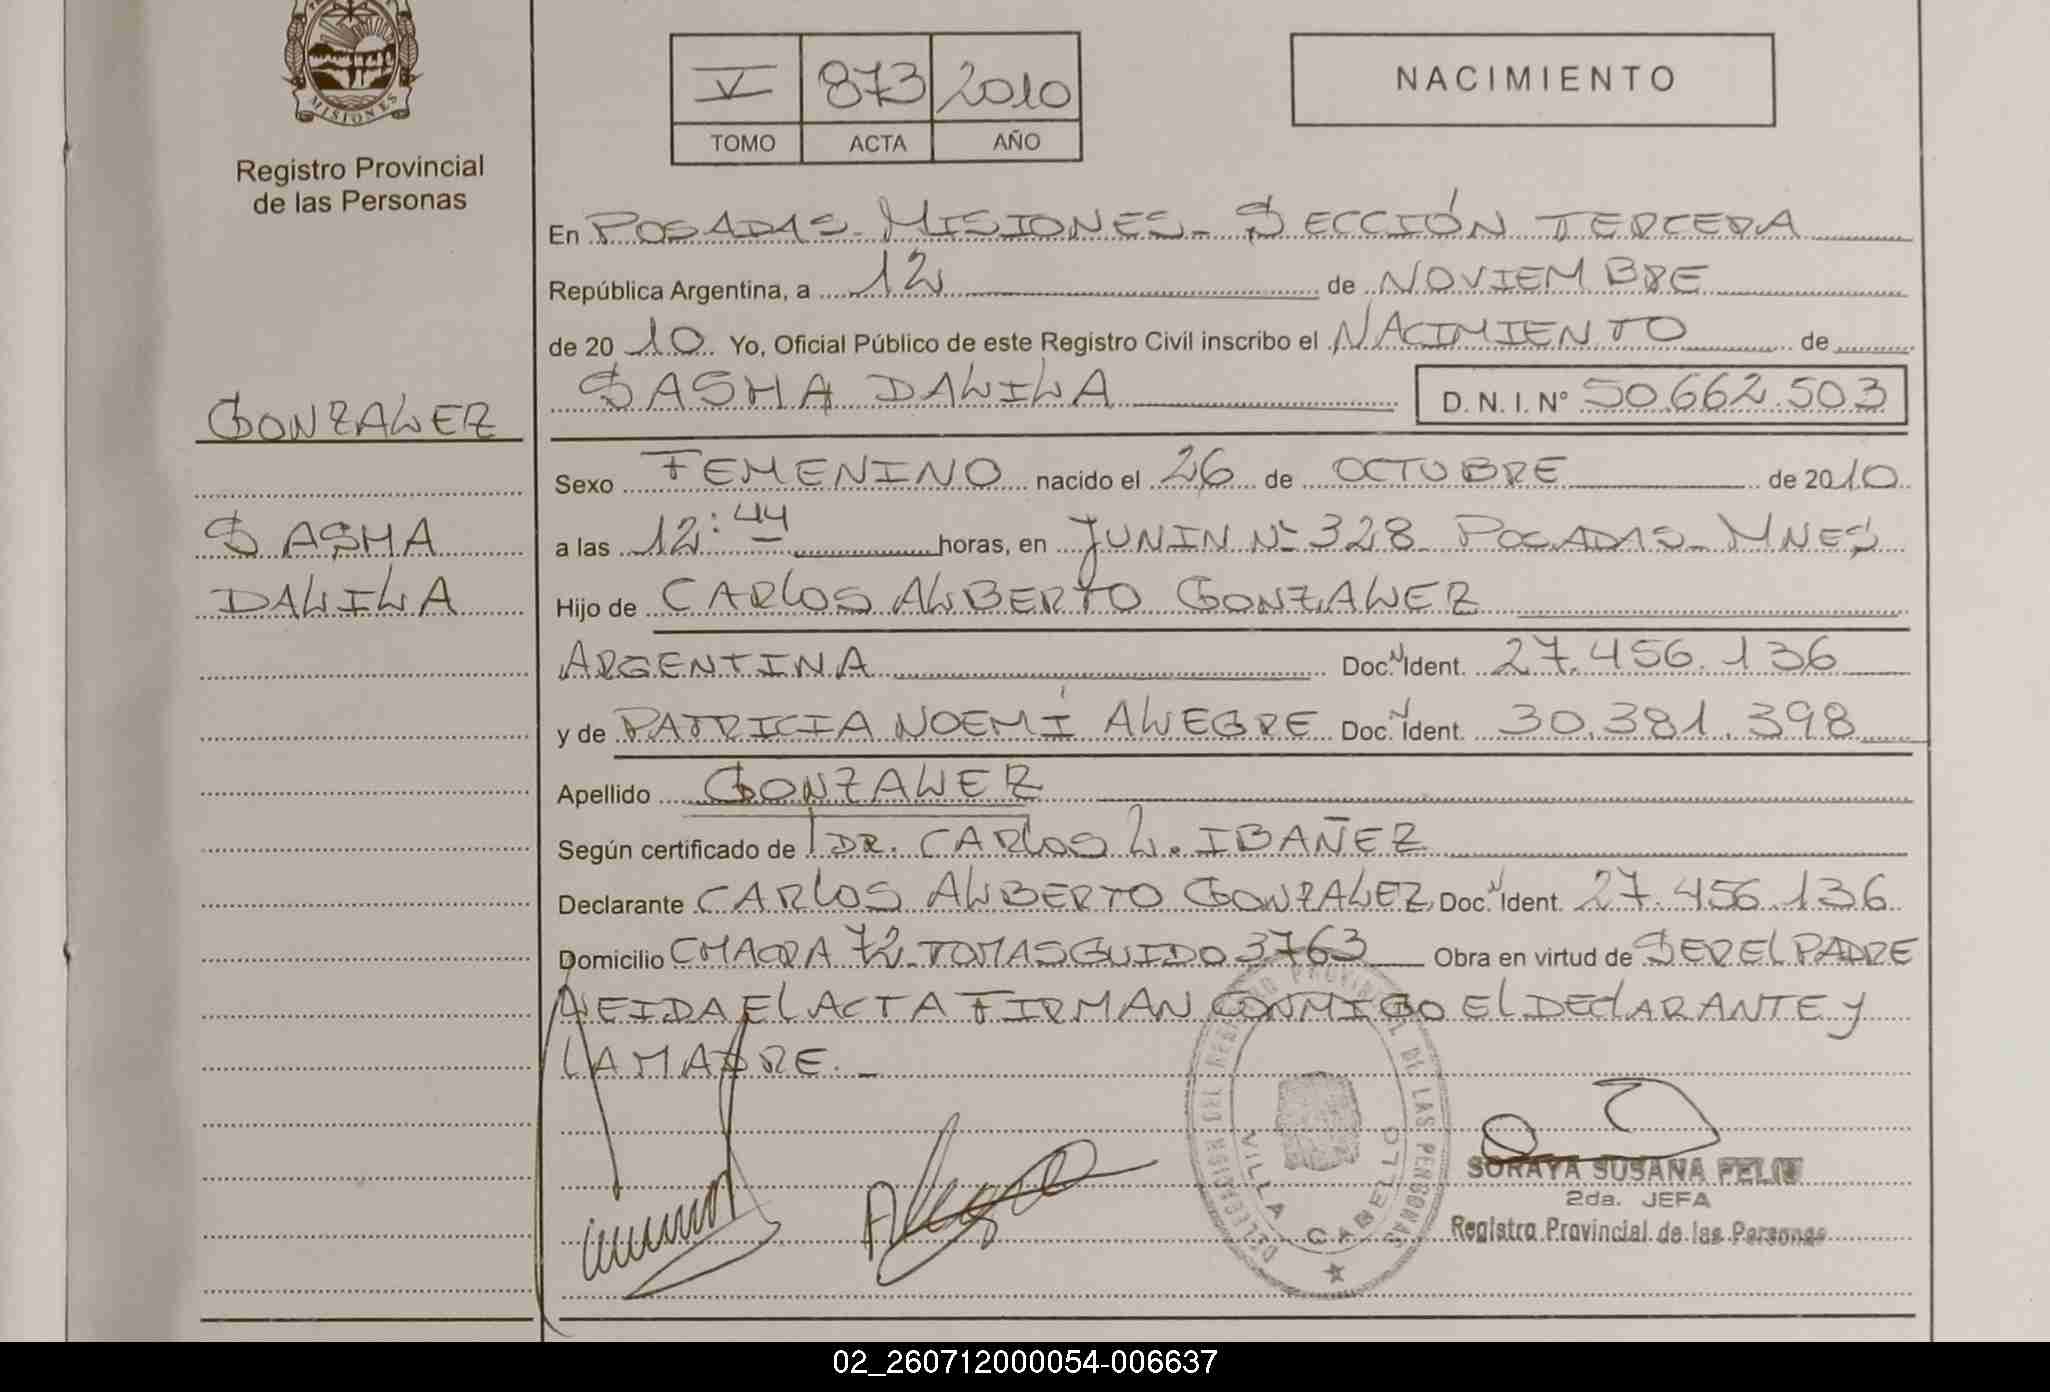 MISIONES
Registro Provincial
de las Personas
V 873 2010
TOMO ACTA AÑO
NACIMIENTO
En POSADAS - MISIONES - SECCIÓN TERCERA
República Argentina, a 12 de NOVIEMBRE
de 2010 Yo, Oficial Público de este Registro Civil inscribo el NACIMIENTO de
SASHA DALILA D. N. I. N° 50.662.503
GONZALEZ
SASHA
DALILA
Sexo FEMENINO nacido el 26 de OCTUBRE de 2010
a las 12:44 horas, en JUNIN Nº 328 POSADAS - MNES
Hijo de CARLOS ALBERTO GONZALEZ
ARGENTINA Doc. N Ident. 27.456.136
y de PATRICIA NOEMÍ ALEGRE Doc. N Ident. 30.381.398
Apellido GONZALEZ
Según certificado de DR. CARLOS L. IBAÑEZ
Declarante CARLOS ALBERTO GONZALEZ Doc. N Ident. 27.456.136
Domicilio CHACRA 72 - TOMAS GUIDO 3763 Obra en virtud de SER EL PADRE
LEIDA EL ACTA FIRMAN CONMIGO EL DECLARANTE Y
LA MADRE. -
DELEGACION DEL REGISTRO PROVINCIAL DE LAS PERSONAS
VILLA CABELLO
SORAYA SUSANA FELIU
2da. JEFA
Registro Provincial de las Personas
02_260712000054-006637